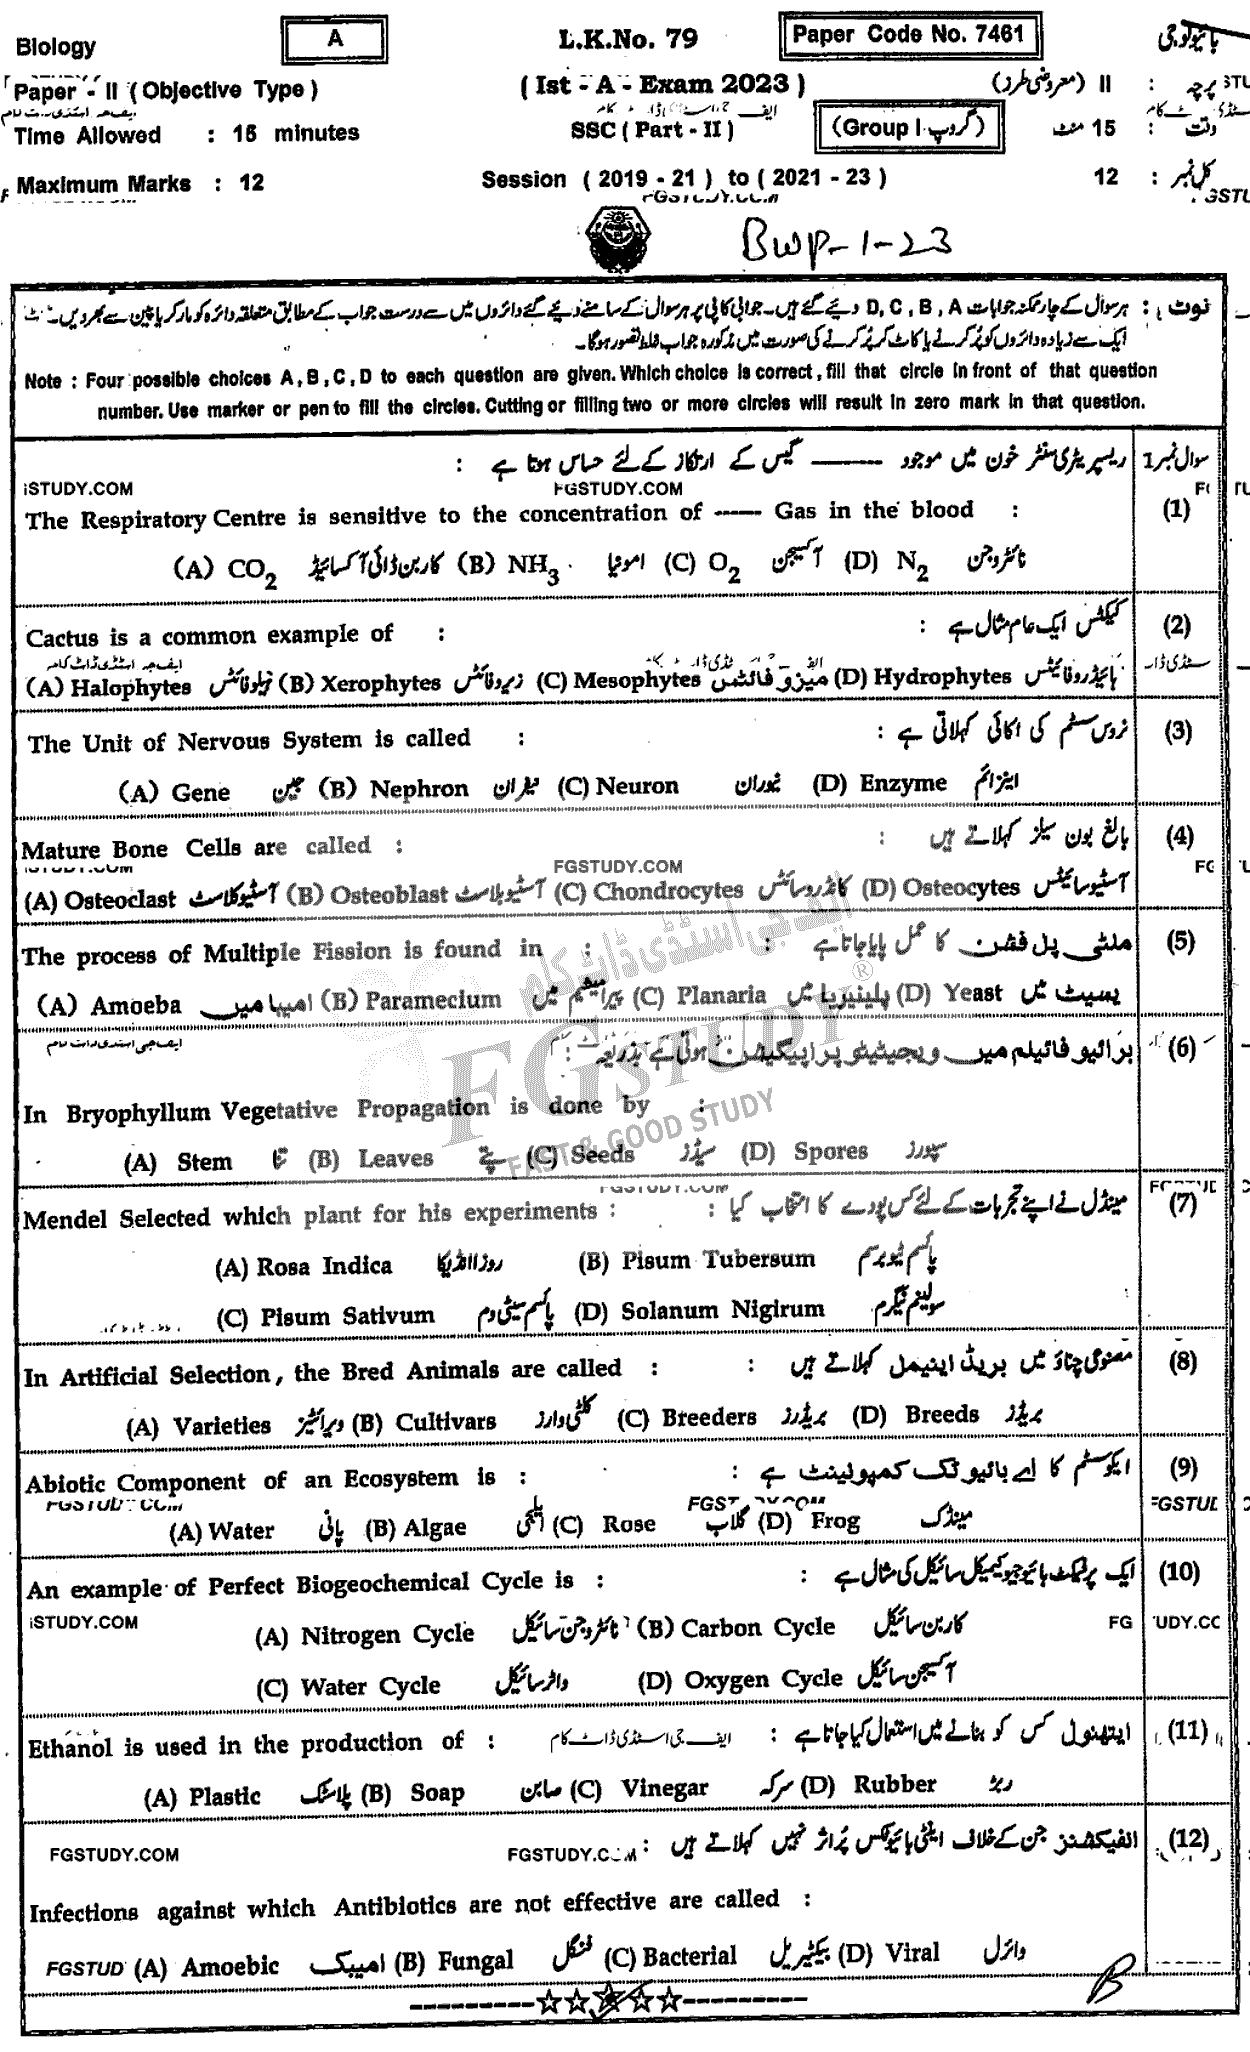 Biology
A
L.K.No. 79
Paper Code No. 7461
بائیولوجی
Paper - II ( Objective Type )
( Ist - A - Exam 2023 )
پرچہ : II (معروضی طرز)
Time Allowed : 15 minutes
SSC ( Part - II )
(Group I گروپ)
وقت : 15 منٹ
Maximum Marks : 12
Session ( 2019 - 21 ) to ( 2021 - 23 )
کل نمبر : 12
FGSTUDY.COM
BWP-1-23
نوٹ : ہر سوال کے چار ممکنہ جوابات D , C , B , A دیئے گئے ہیں۔ جوابی کاپی پر ہر سوال کے سامنے دیئے گئے دائروں میں سے درست جواب کے مطابق متعلقہ دائرہ کو مارکر یا پین سے بھر دیں۔
ایک سے زیادہ دائروں کو پُر کرنے یا کاٹ کر پُر کرنے کی صورت میں مذکورہ جواب غلط تصور ہوگا۔
Note : Four possible choices A , B , C , D to each question are given. Which choice is correct , fill that circle in front of that question
number. Use marker or pen to fill the circles. Cutting or filling two or more circles will result in zero mark in that question.
سوال نمبر 1 ریسپریٹری سنٹر خون میں موجود ——— گیس کے ارتکاز کے لئے حساس ہوتا ہے :
iSTUDY.COM FGSTUDY.COM
(1) The Respiratory Centre is sensitive to the concentration of ----- Gas in the blood :
(A) CO2 کاربن ڈائی آکسائیڈ (B) NH3 امونیا (C) O2 آکسیجن (D) N2 نائٹروجن
(2) Cactus is a common example of : کیکٹس ایک عام مثال ہے :
(A) Halophytes ہیلوفائٹس (B) Xerophytes زیروفائٹس (C) Mesophytes میزوفائٹس (D) Hydrophytes ہائیڈروفائیٹس
(3) The Unit of Nervous System is called : نروس سسٹم کی اکائی کہلاتی ہے :
(A) Gene جین (B) Nephron نیفران (C) Neuron نیوران (D) Enzyme اینزائم
(4) Mature Bone Cells are called : بالغ بون سیلز کہلاتے ہیں :
FGSTUDY.COM
(A) Osteoclast آسٹیوکلاسٹ (B) Osteoblast آسٹیوبلاسٹ (C) Chondrocytes کانڈروسائٹس (D) Osteocytes آسٹیوسائیٹس
(5) The process of Multiple Fission is found in : ملٹی پل فشن کا عمل پایا جاتا ہے :
(A) Amoeba امیبا میں (B) Paramecium پیرامیشیم میں (C) Planaria پلینیریا میں (D) Yeast یسیٹ میں
ایف جی اسٹڈی ڈاٹ کام
FGSTUDY ®
FAST & GOOD STUDY
(6) برائیوفائیلم میں ویجیٹیٹو پراپیگیشن ہوتی ہے بذریعہ :
In Bryophyllum Vegetative Propagation is done by :
(A) Stem تنا (B) Leaves پتے (C) Seeds سیڈز (D) Spores سپورز
FGSTUDY.COM
(7) Mendel Selected which plant for his experiments : مینڈل نے اپنے تجربات کے لئے کس پودے کا انتخاب کیا :
(A) Rosa Indica روزا انڈیکا (B) Pisum Tubersum پائسم ٹیوبرسم
(C) Pisum Sativum پائسم سیٹی وم (D) Solanum Nigirum سولینم نیگرم
(8) In Artificial Selection , the Bred Animals are called : مصنوعی چناؤ میں بریڈ اینیمل کہلاتے ہیں :
(A) Varieties ویرائٹیز (B) Cultivars کلٹی وارز (C) Breeders بریڈرز (D) Breeds بریڈز
(9) Abiotic Component of an Ecosystem is : ایکوسسٹم کا اے بائیوٹک کمپونینٹ ہے :
FGSTUDY.COM FGSTUDY.COM FGSTUD
(A) Water پانی (B) Algae ایلجی (C) Rose گلاب (D) Frog مینڈک
(10) An example of Perfect Biogeochemical Cycle is : ایک پرفیکٹ بائیوجیوکیمیکل سائیکل کی مثال ہے :
iSTUDY.COM FG TUDY.CO
(A) Nitrogen Cycle نائٹروجن سائیکل (B) Carbon Cycle کاربن سائیکل
(C) Water Cycle واٹر سائیکل (D) Oxygen Cycle آکسیجن سائیکل
(11) Ethanol is used in the production of : ایف جی اسٹڈی ڈاٹ کام ایتھنول کس کو بنانے میں استعمال کیا جاتا ہے :
(A) Plastic پلاسٹک (B) Soap صابن (C) Vinegar سرکہ (D) Rubber ربڑ
(12) انفیکشنز جن کے خلاف اینٹی بائیوٹکس پُراثر نہیں کہلاتے ہیں :
FGSTUDY.COM FGSTUDY.COM
Infections against which Antibiotics are not effective are called :
FGSTUD (A) Amoebic امیبک (B) Fungal فنگل (C) Bacterial بیکٹیریل (D) Viral وائرل
B